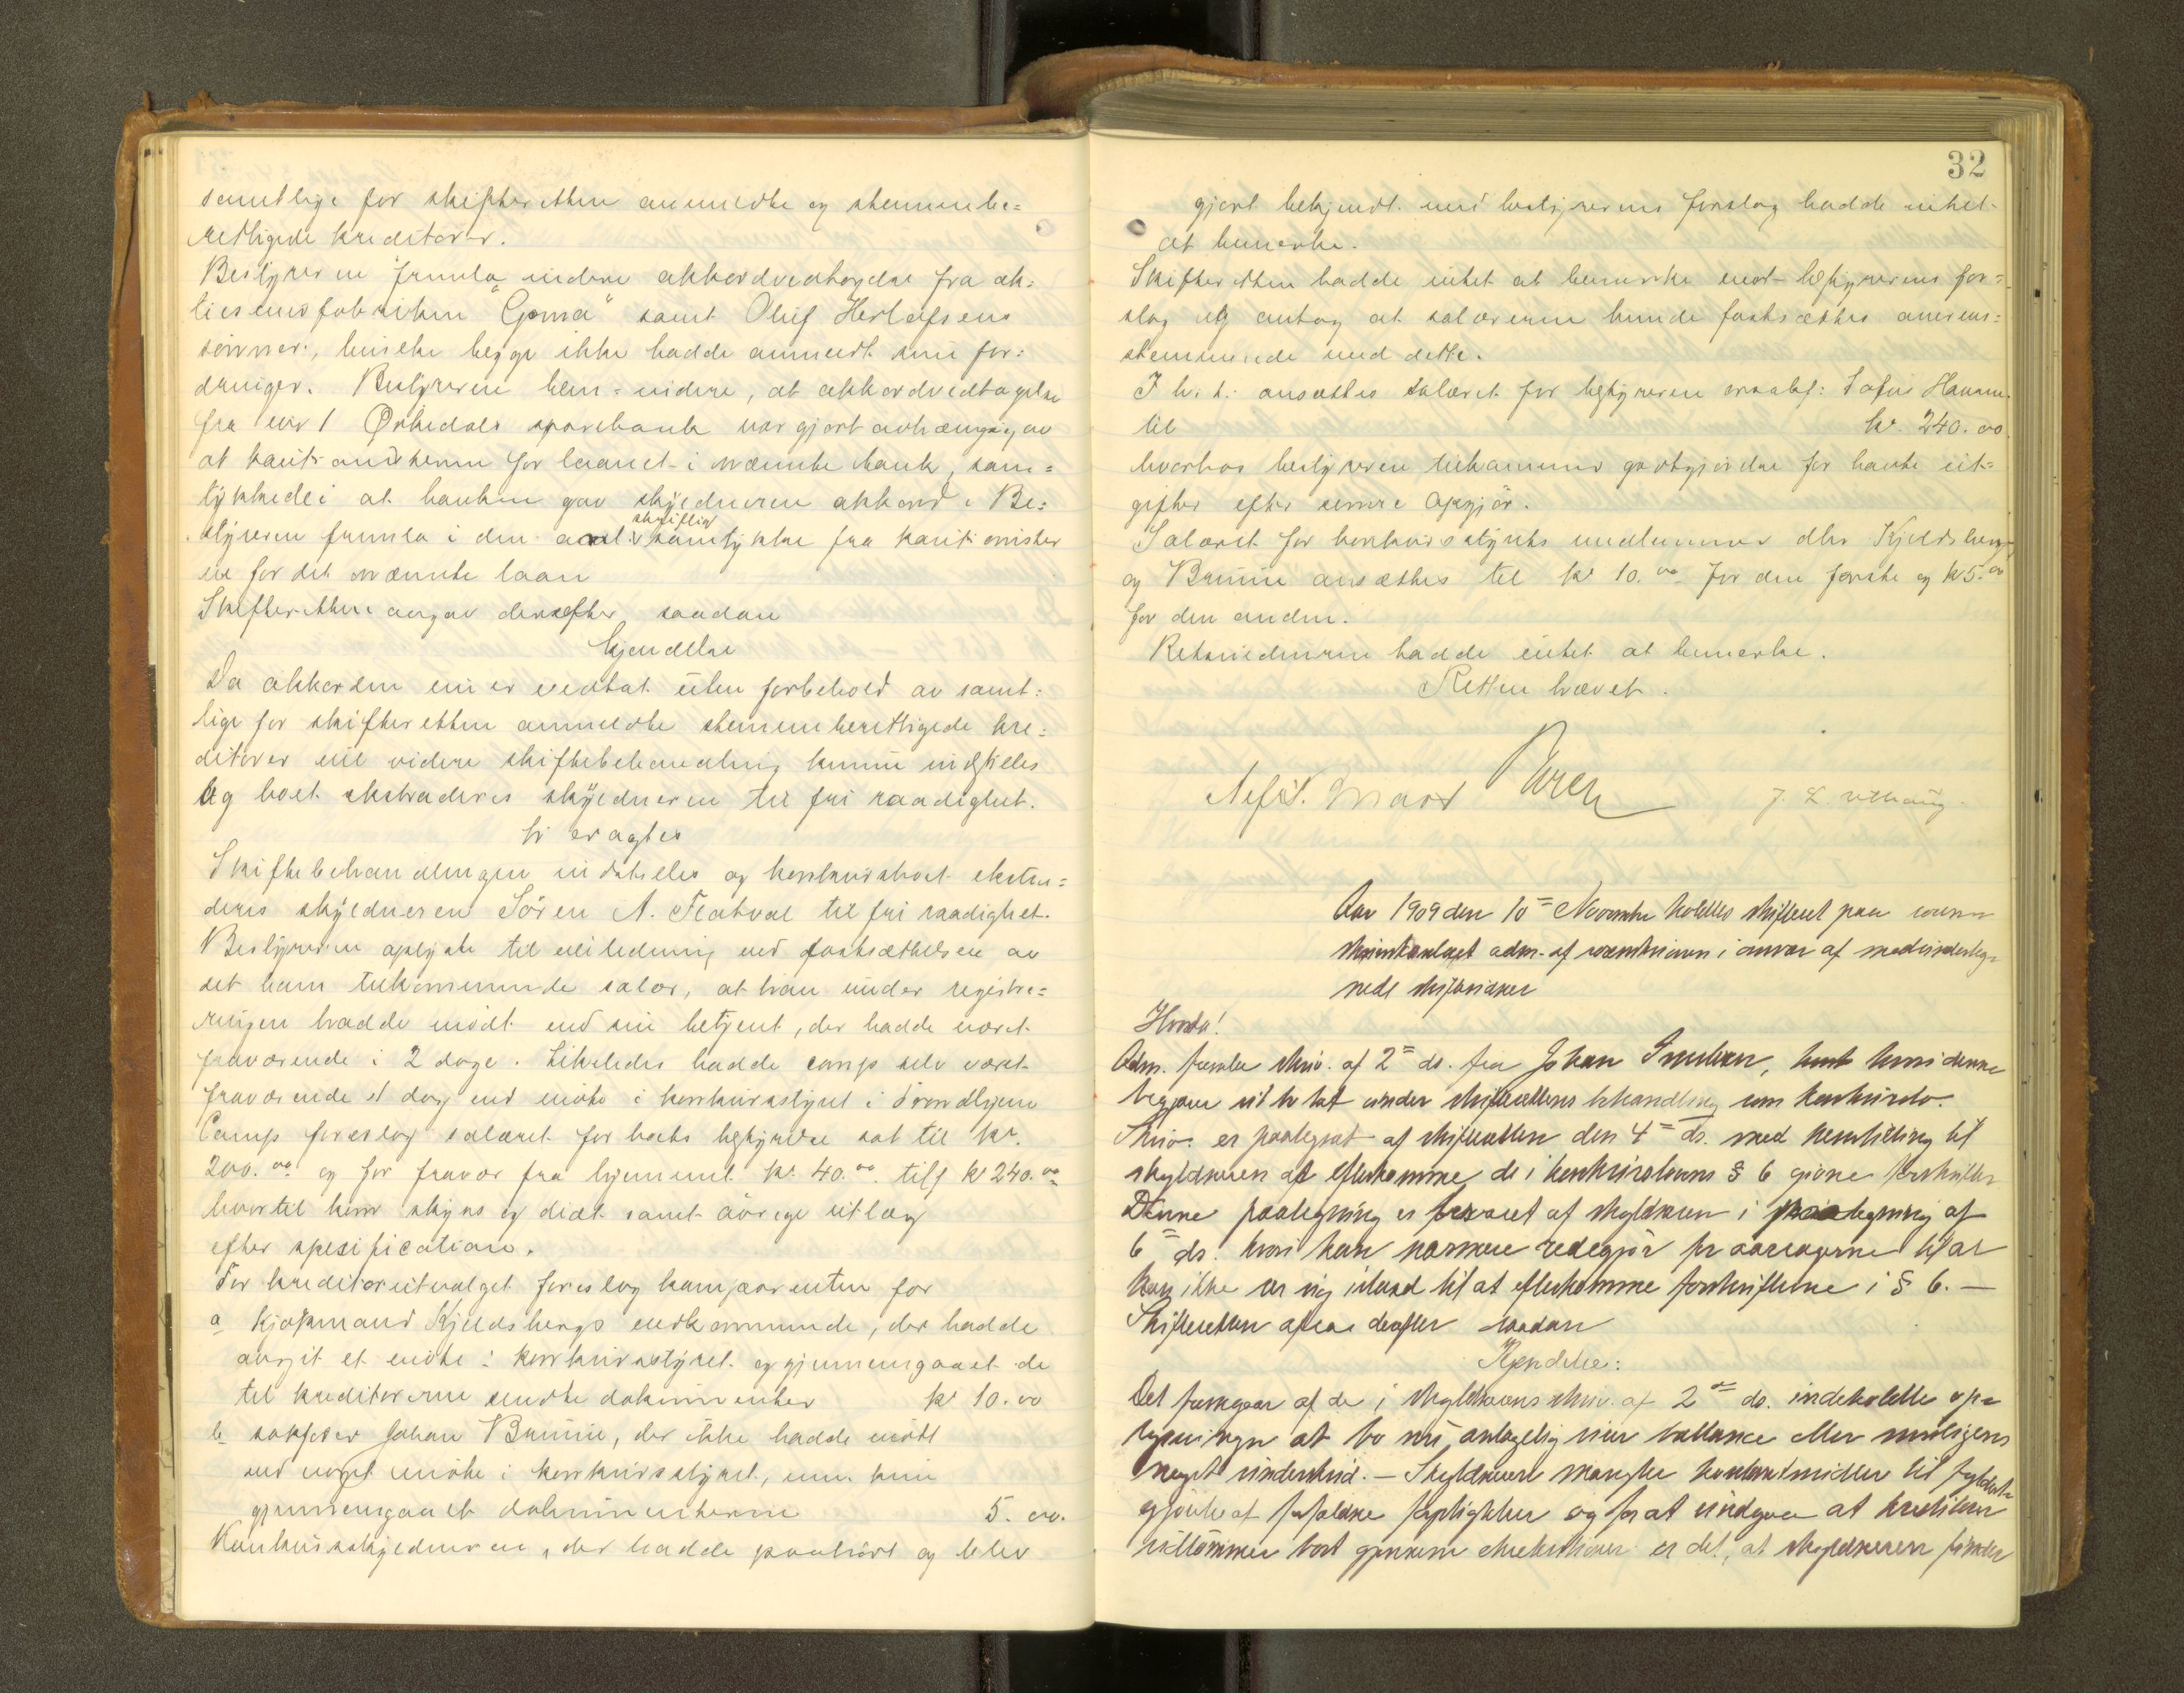 samtlige for skifteretten anmeldte og stemmebe=
rettigede kreditorer.
Bestyreren fremla videre akkordvedtagelse fra ak=
tiesenefabriken "Goma" samt Oluf Herlofsens
sønner, hvilke begge ikke hadde anmeldt sine for=
dringer. Bestyreren bem. videre, at akkordvedtagelse
fra nr 1 Ørkedals sparebank var gjort avhængig av
at kautionisterne for laanet i nævnte bank, sam=
tykkede i at banken gav skyldneren akkord. Be=
styreren fremla i den anl. skriftlig samtykke fra kautionister
ne for det nævnte laan
Skifteretten avgav derefter saadan
Kjendelse
Da akkorden nu er vedtat uten forbehold av samt=
lige for skifteretten anmeldte stemmeberettigede kre=
ditorer vil videre skiftebehandling kunne indstilles
og boet ekstraderes skyldneren til fri raadighet.
ti eragtes
Skiftebehandlingen indstilles og konkursboet ekstra=
deres skyldneren Sören A. Fladval til fri raadighet.
Bestyreren oplyste til veiledning ved fastsættelsen av
det ham tilkommende salær, at han under registre=
ringen hadde mödt ved sin betjent, der hadde været
fraværende i 2 dage. Likeledes hadde comp selv været
fraværende et dag ved møte i konkursstyret i Trondhjem
Comp foreslog salæret for boets bestyrelse sat til kr.
200.00 og for fravær fra hjemmet kr. 40.00. tils kr 240.00
hvortil kom skyss og diæt samt övrige utlæg
efter spesification.
For kreditorutvalget foreslog komparenten for
a kjøpmand Kjeldsbergs vedkommende, der hadde
avgit et møte i konkursstyret og gjennemgaaet de
til kreditorerne sendte dokumenter kr 10.00
b sakfører Johan Bruun, der ikke hadde mött
ved noget møte i konkursstyret, men kun
gjennemgaaet dokumenterne 5.00.
Konkursskyldneren, der hadde paahört og blev
32
gjort bekjendt med bestyrerens forslag hadde intet
at bemerke.
Skifteretten hadde intet at bemerke mot bestyrerens for=
slag og antog at salærerne kunde fastsættes overens=
stemmende med dette.
I h. t. ansættes salæret for bestyreren overretssakf.
til kr. 240.00
hvorhos bestyreren tilkommer godtgjörelse for havte ut=
gifter efter senere opgjör.
Salæret for konkursstyrets medlemmer dhr Kjeldsberg
og Bruun ansættes til kr 10.00 for den første og kr 5.00
for den anden.
Retsvidnerne hadde intet at bemerke.
Retten hævet.
J. L.
Aar 1909 den 10de November holdtes skifteret paa
adm. af i nærvær af
rede skifte
Hvorda!
Adm. fremla skriv. af 2de ds. fra Johan, hvori denne
begjærer sit bo tat under skifterettens behandling som konkursbo.
Skriv. er paategnet af skifteretten den 4de ds. med henstilling til
skyldneren at efterkomme de i konkurslovens § 6 givne forskrifter
Denne paategning er besvaret af skyldneren i paategning af
6te ds. hvori han nærmere redegjör for aarsagerne til at
han ikke ser sig istand til at efterkomme forskrifterne i § 6. —
Skifteretten afsa derefter saadan
Kjendelse:
Det fremgaar af de i skyldnerens skriv. af 2de ds. indeholdte op=
lysninger at bo nu antagelig viser ballance eller muligens
noget underskud. — Skyldneren mangler kontantmidler til fyldest=
gjörelse af forfaldne forpligtelser og for at undgaa at kreditorer
uttömmer boet gjennem eksekutioner er det, at skyldneren finder